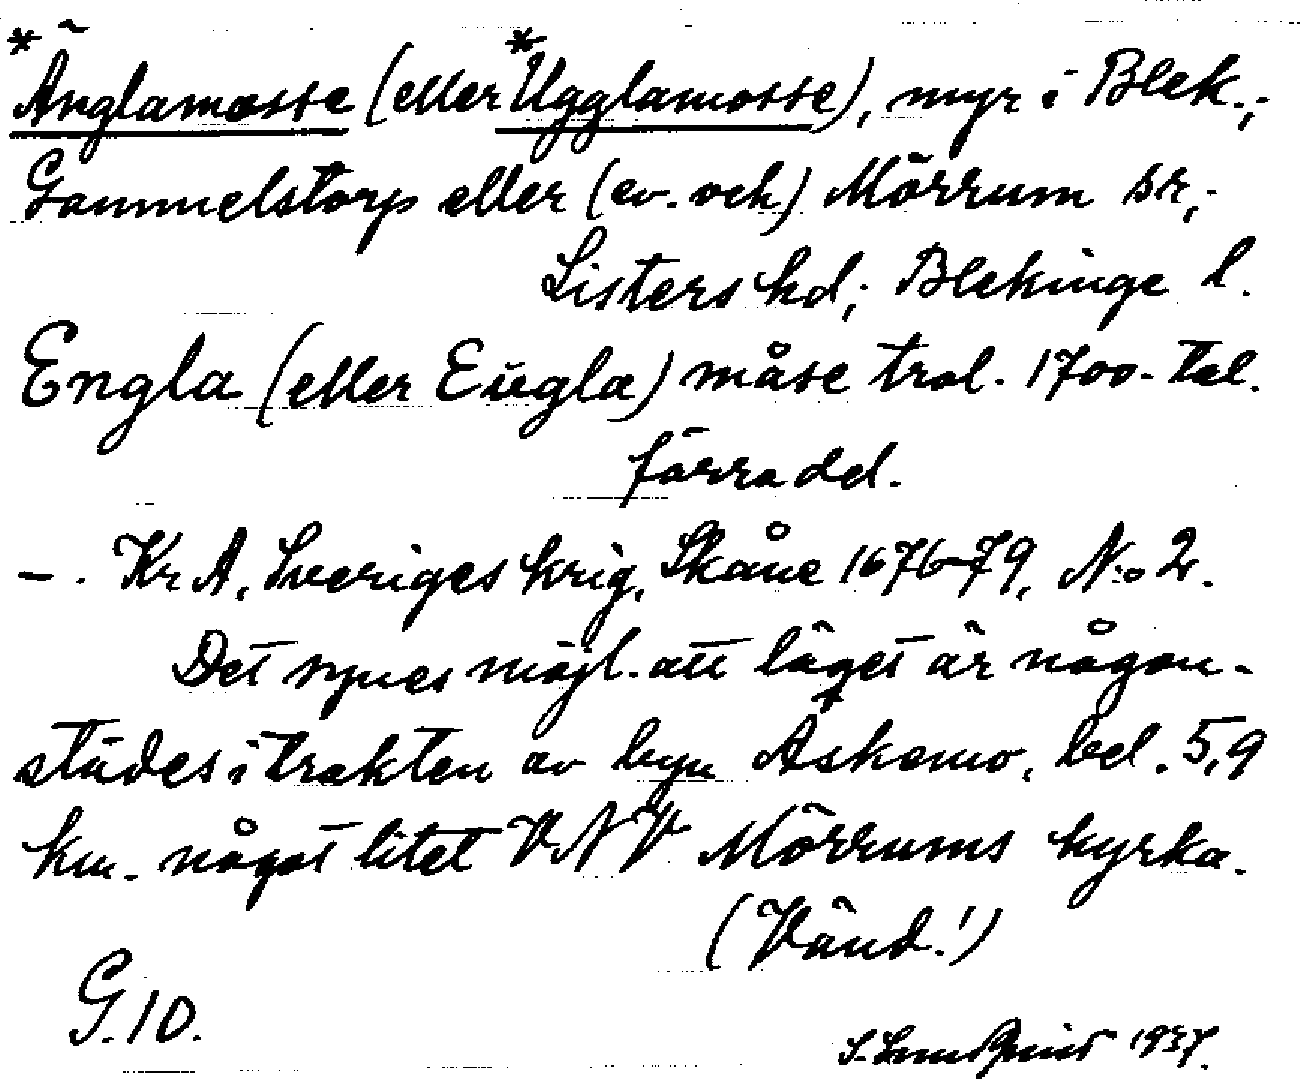 *Änglamosse (eller *Ugglamosse), myr i Blek.;
Gammelstorp eller (ev. och) Mörrum sr,;
Listers hd; Blekinge l.
Engla (eller Eügla) måse trol. 1700-tal.
förra del.
—. KrA, Sveriges krig, Skåne 1676-79, N:o 2.
Det synes möjl. att läget är någon-
städes i trakten av byn Askemo, bel. 5,9
km. något litet VNV Mörrums kyrka.
(Vänd!)
G. 10.
S. Lundquist 1937.